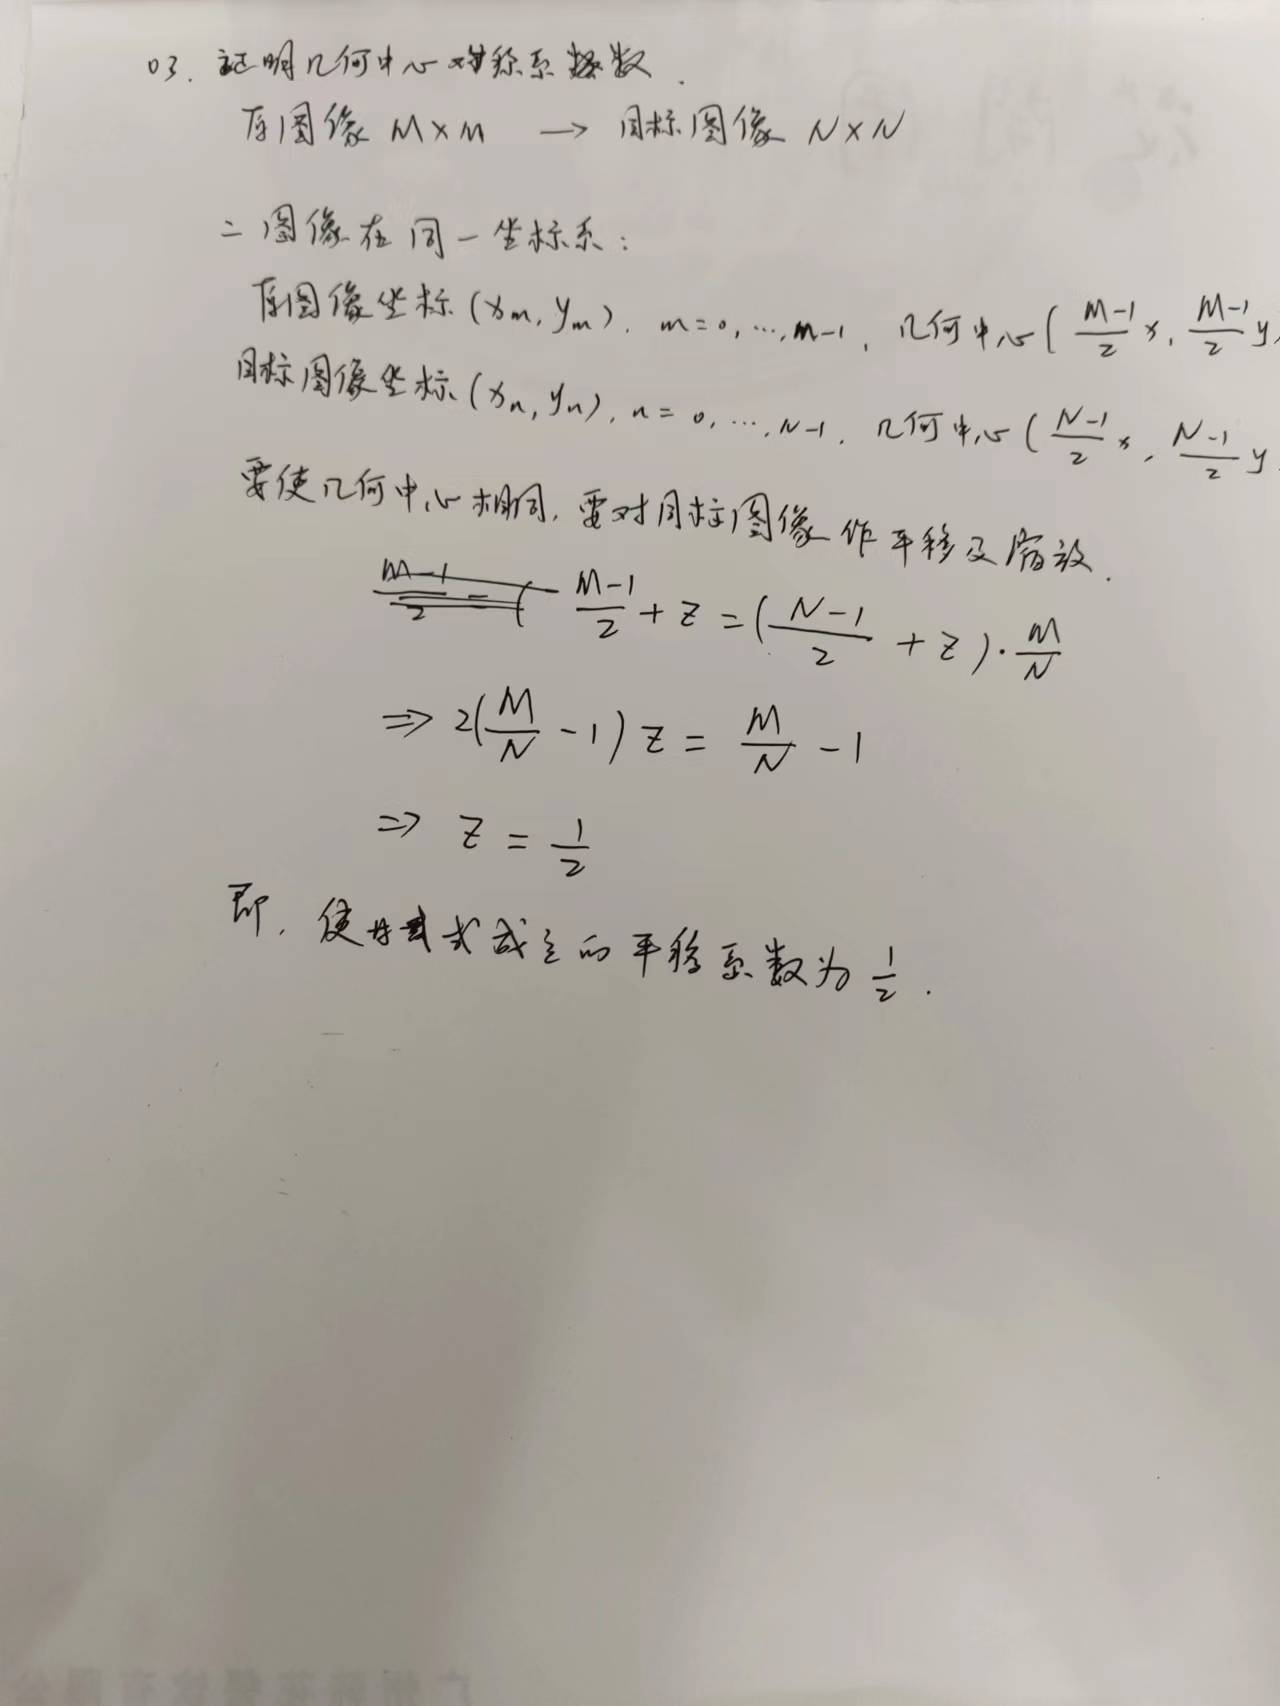 03. 证明几何中心对称系数.
原图像 M×M → 目标图像 N×N
二图像在同一坐标系:
原图像坐标(xm, ym), m=0,…,M-1, 几何中心(M-1/2 x, M-1/2 y
目标图像坐标(xn, yn), n=0,…,N-1, 几何中心(N-1/2 x, N-1/2 y
要使几何中心相同, 要对目标图像作平移及缩放.
M-1/2 + Z = (N-1/2 + Z)·M/N
⇒ 2(M/N - 1) Z = M/N - 1
⇒ Z = 1/2
即, 使 式成立的平移系数为 1/2.